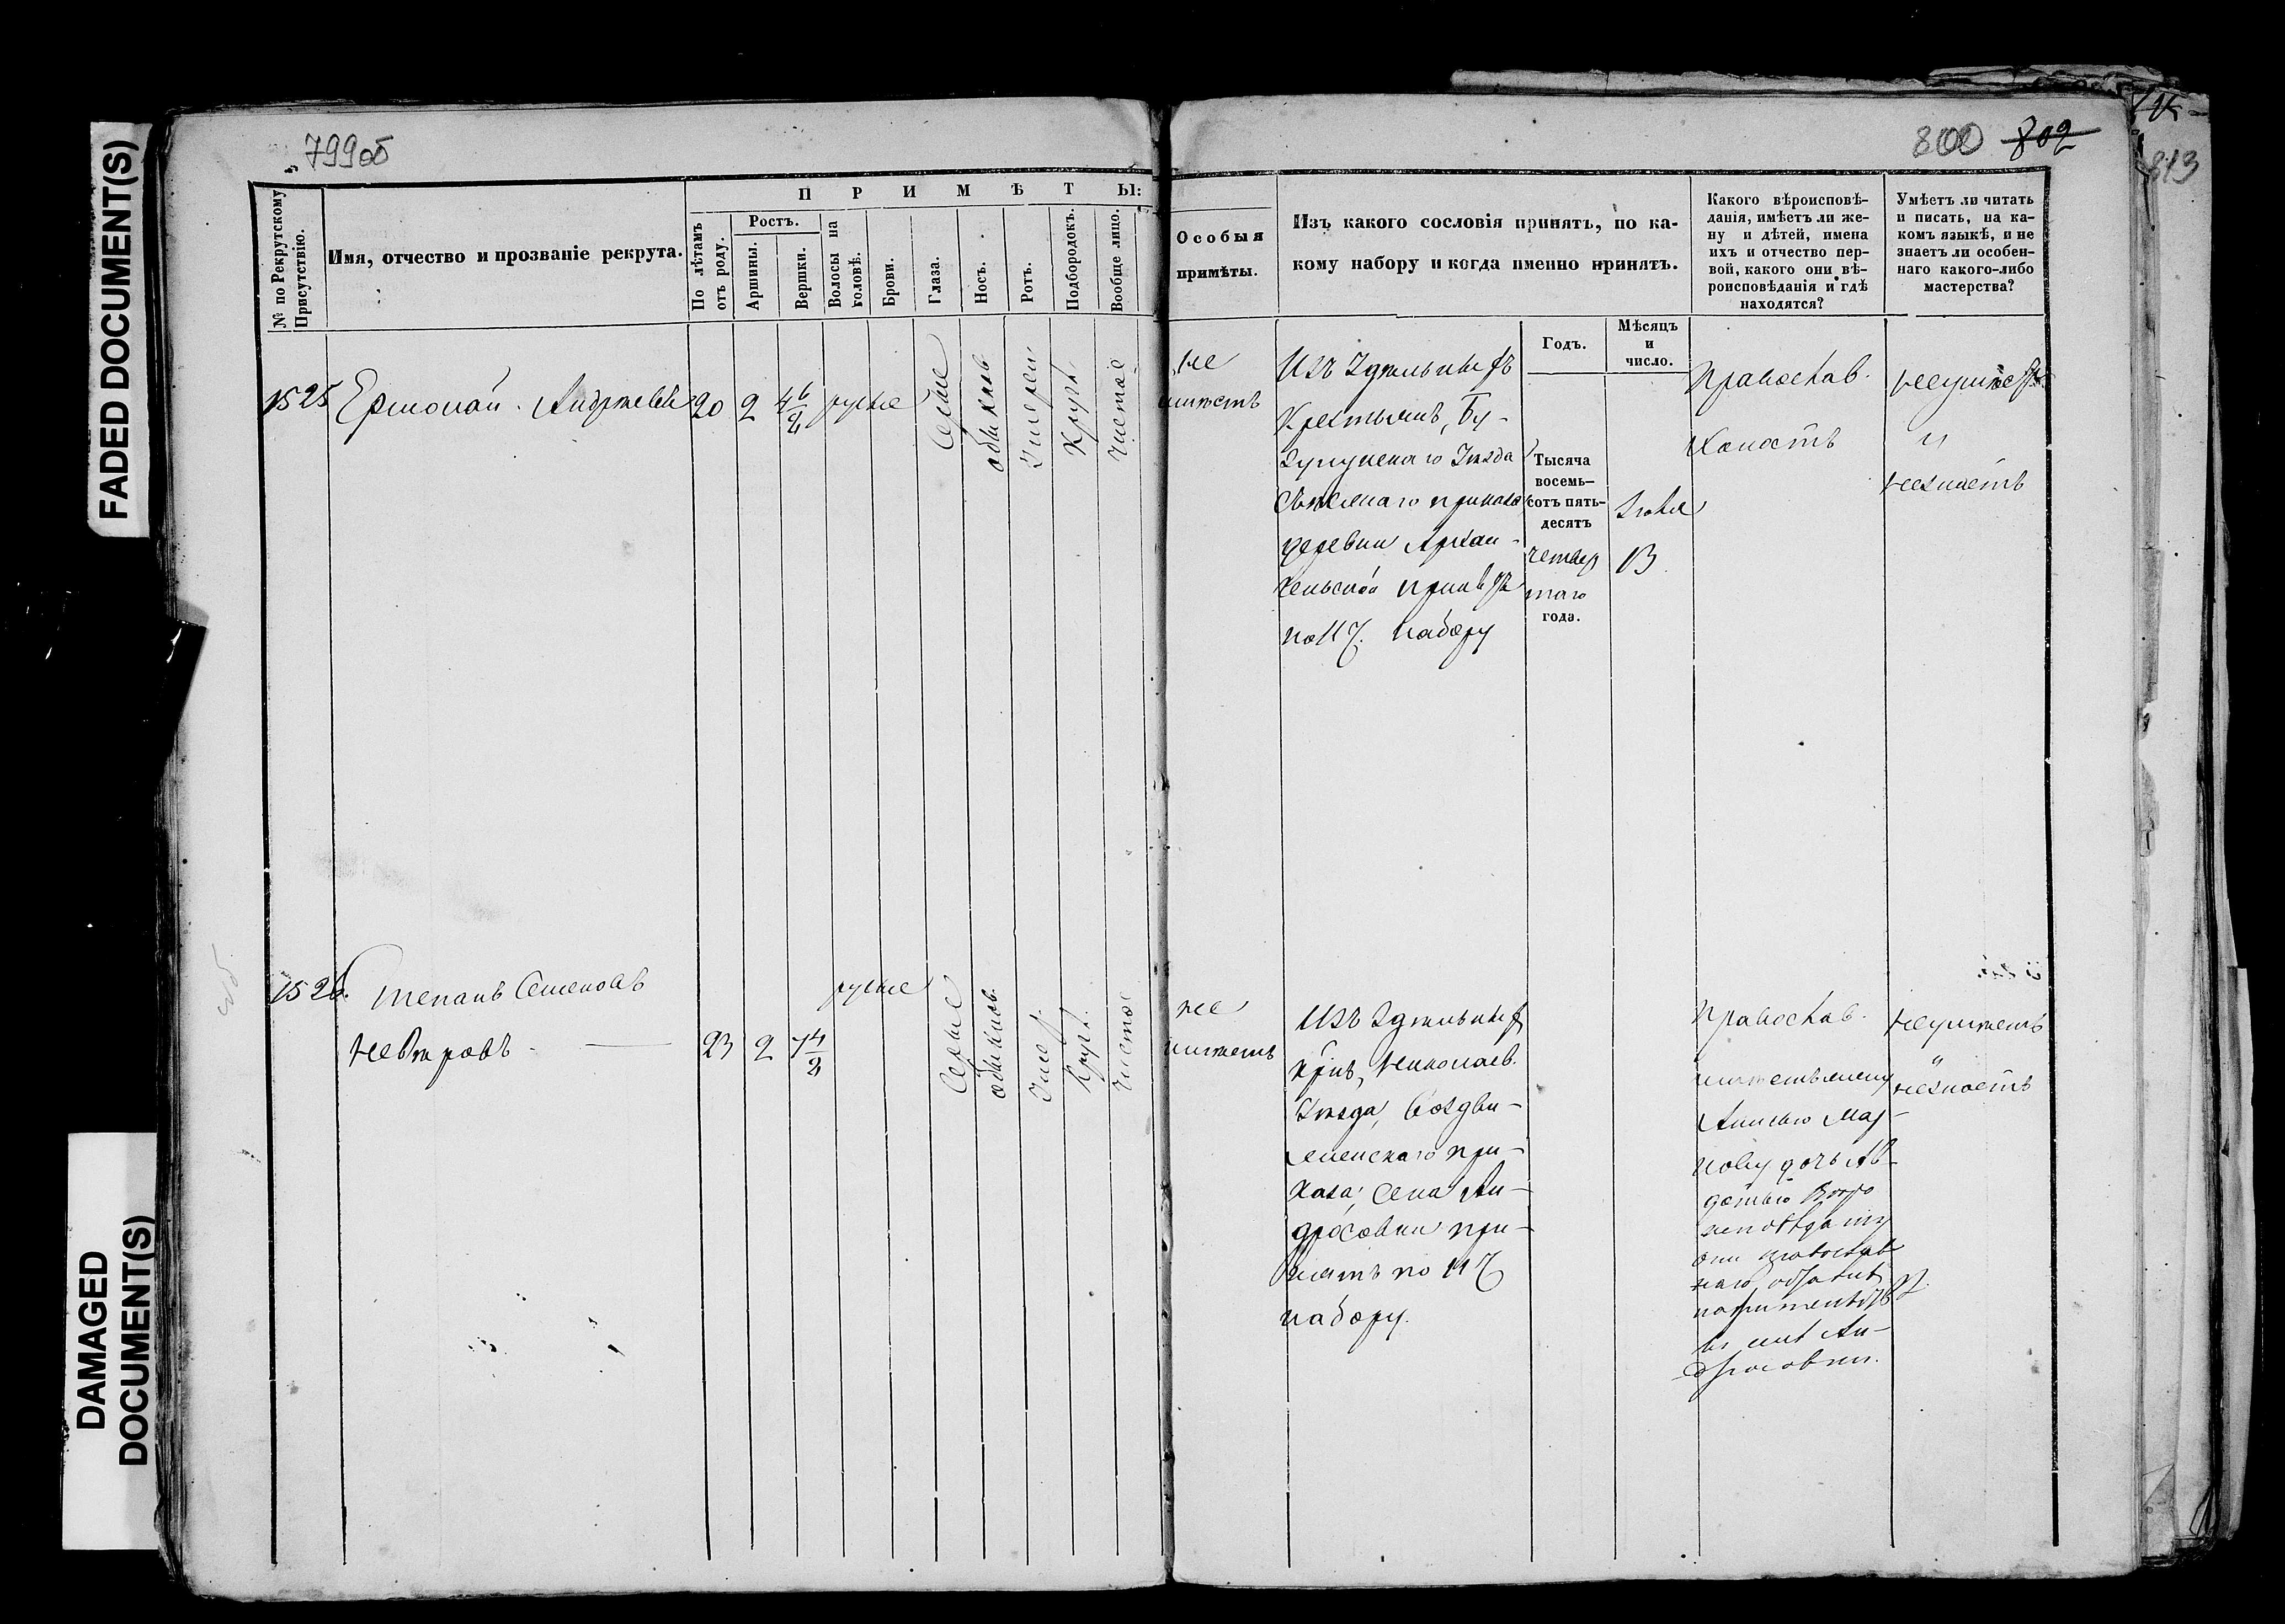 FADED DOCUMENT(S)
DAMAGED
DOCUMENT(S)
799об
800 802
813
№ по Рекрутскому
Присутствію.
Имя, отчество и прозваніе рекрута.
П Р И М Ѣ Т Ы:
По лѣтамъ
отъ роду.
Ростъ.
Аршины.
Вершки.
Волосы на
головѣ.
Брови.
Глаза.
Носъ.
Ротъ.
Подбородокъ.
Вообще лицо.
Особыя
примѣты.
Изъ какого сословія принятъ, по ка-
кому набору и когда именно принятъ.
Годъ.
Мѣсяцъ
и
число.
Какого вѣроисповѣ-
данія, имѣетъ ли же-
ну и дѣтей, имена
ихъ и отчество пер-
вой, какого они вѣ-
роисповѣданія и гдѣ
находятся?
Умѣетъ ли читать
и писать, на ка-
комъ языкѣ, и не
знаетъ ли особен-
наго какого-либо
мастерства?
1525
Ермолай Андреевъ
20
2
русые
Серые
обыкнов
умерен
Кругл.
Чистое
не
имѣетъ
Изъ Удѣльныхъ
Крестьянъ, Бу-
зулукскаго Уѣзда
приказа
деревни Архан-
гельской принятъ
по 11 Ч. набору
Тысяча
восемь-
сотъ пять-
десятъ
четвер
таго
года.
Іюля
13
Православ.
Холостъ
неумѣетъ
и
незнаетъ
1526.
Степанъ Семеновъ
23
2
русые
Серые
обыкнов.
Умер.
Кругл.
Чистое
не
имѣетъ
Изъ Удѣльных
крнъ, Николаев.
Уѣзда, Воздви-
женскаго при-
каза, села Ан-
дросовки при-
нятъ по 11 Ч
набору.
Православ.
имѣетъ жену
дочь Ав-
дотью
они православ
наго
въ селѣ Ан-
дросовки.
неумѣетъ
"
незнаетъ